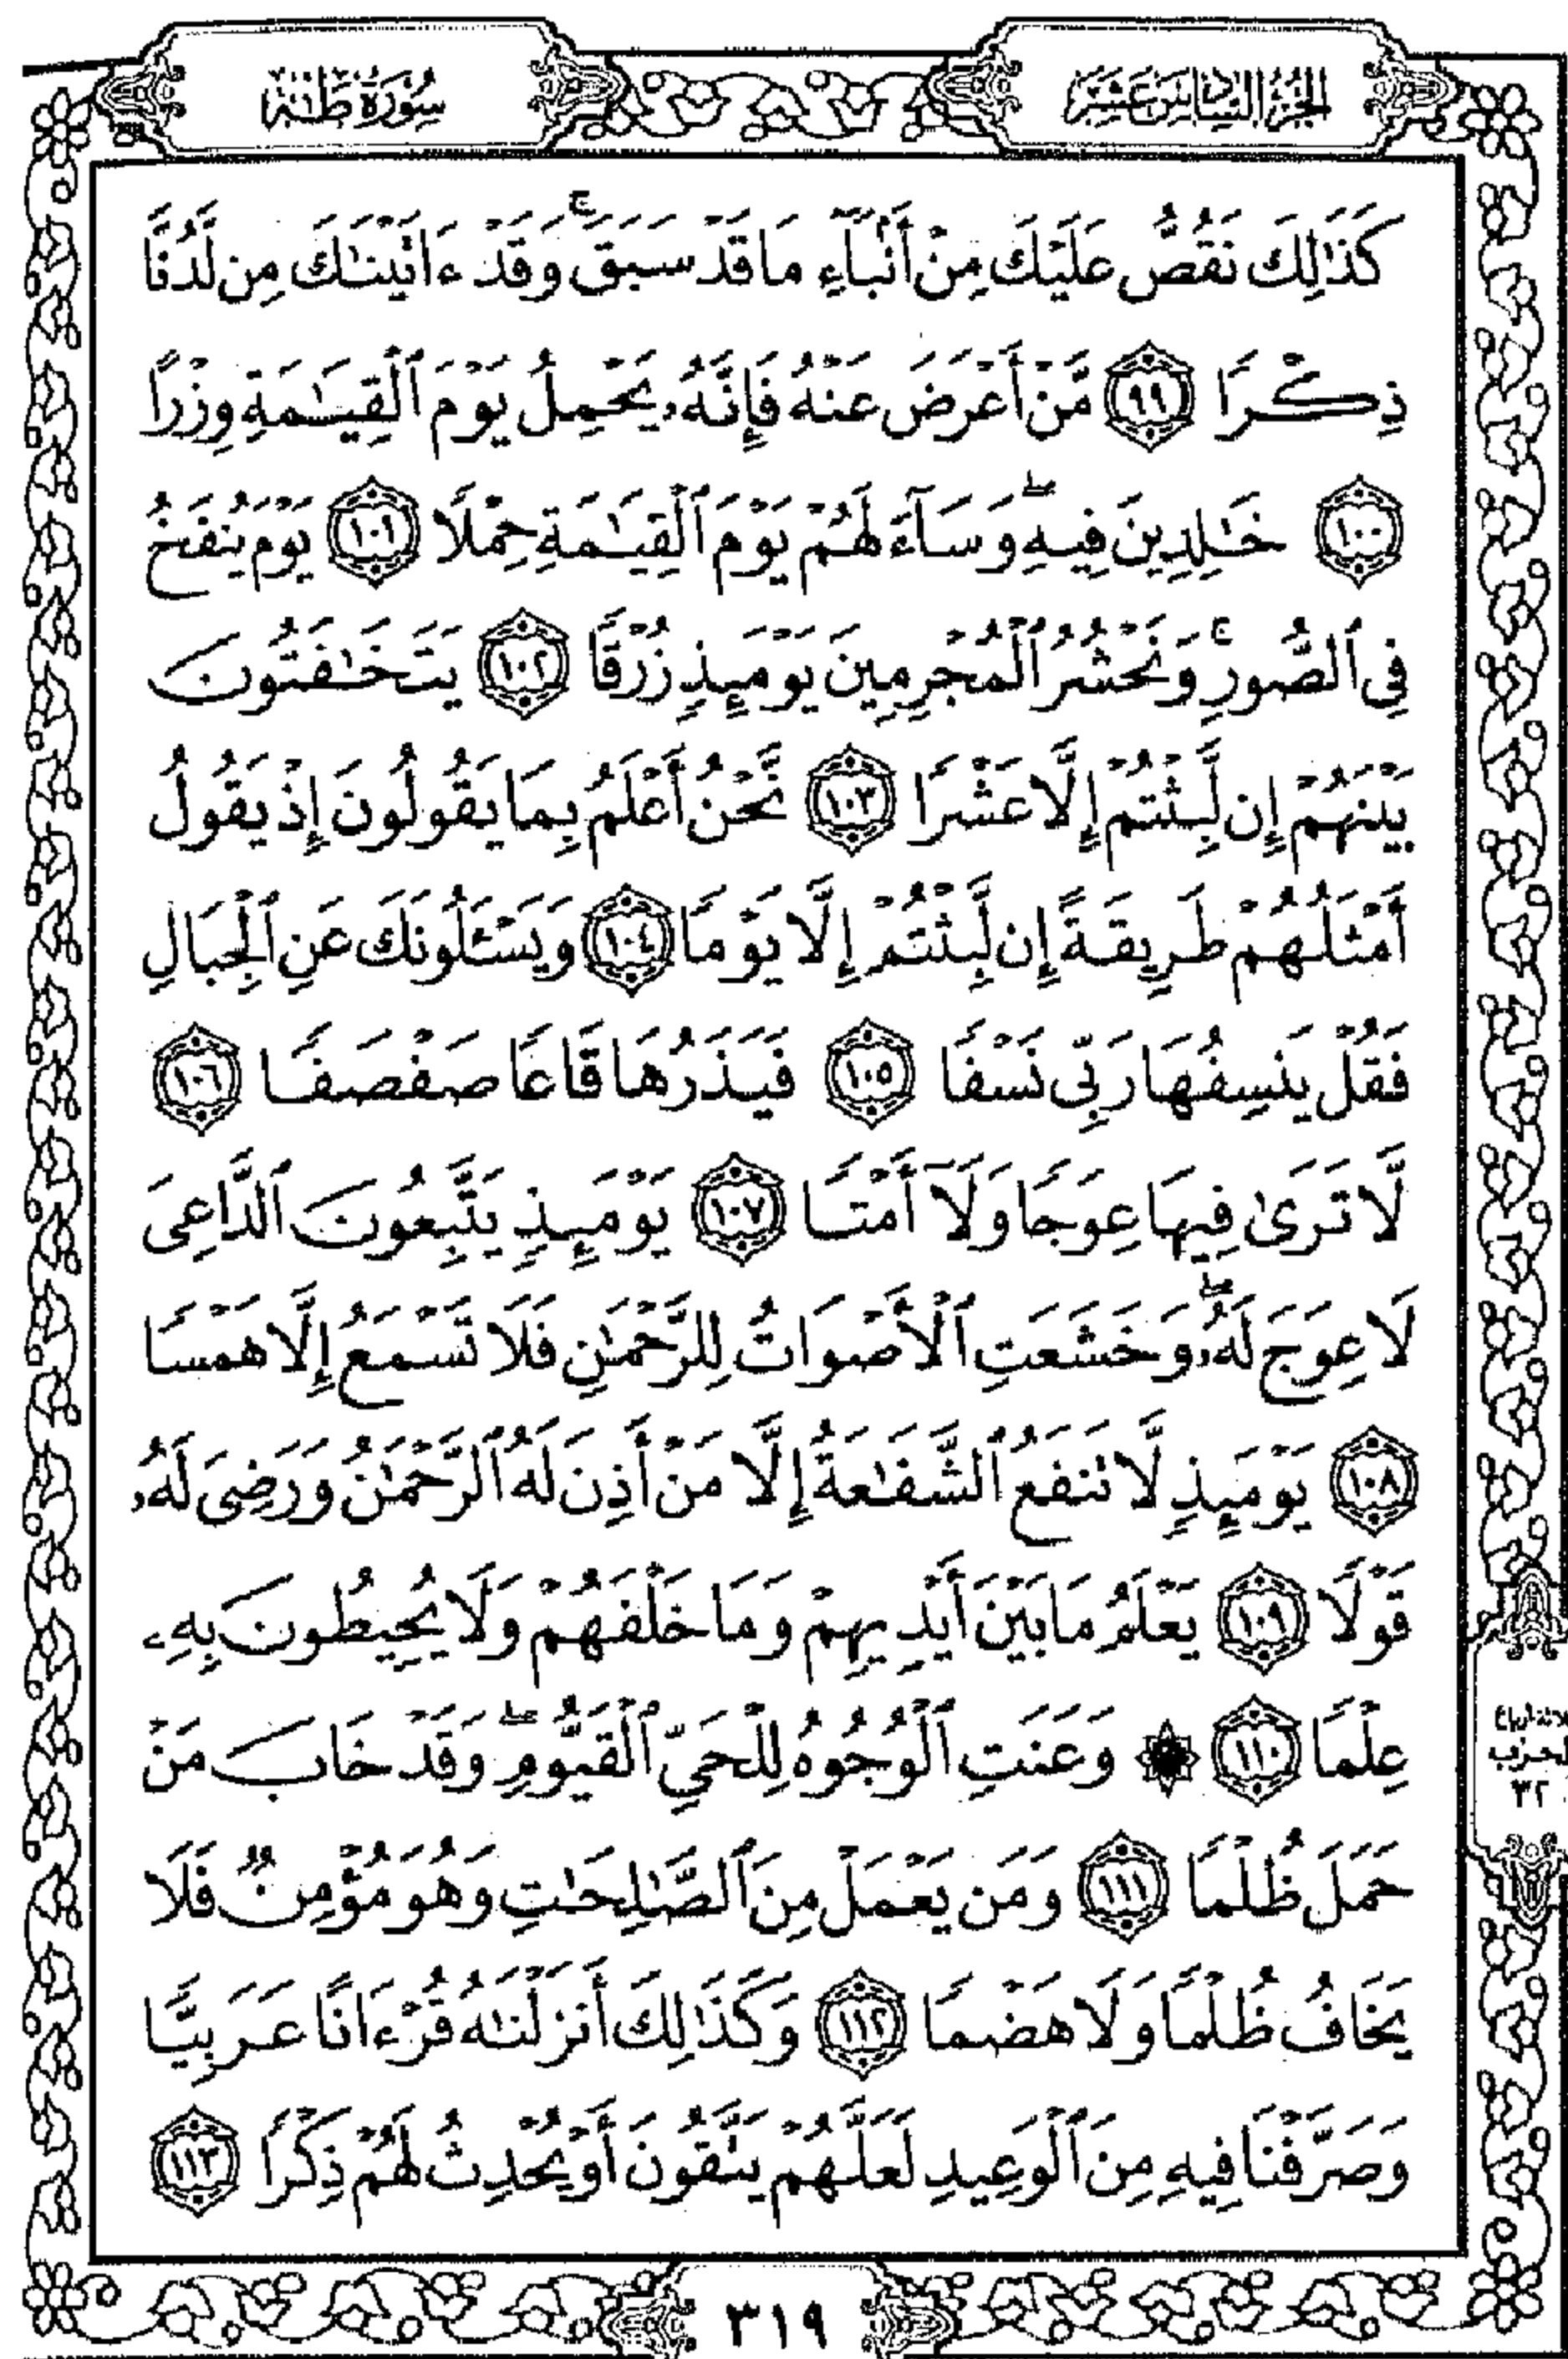 سُورَةُ طه
الجُزْءُ السَّادِسَ عَشَرَ
كَذَٰلِكَ نَقُصُّ عَلَيْكَ مِنْ أَنۢبَآءِ مَا قَدْ سَبَقَۚ وَقَدْ ءَاتَيْنَٰكَ مِن لَّدُنَّا
ذِكْرًا ٩٩ مَّنْ أَعْرَضَ عَنْهُ فَإِنَّهُۥ يَحْمِلُ يَوْمَ ٱلْقِيَٰمَةِ وِزْرًا
١٠٠ خَٰلِدِينَ فِيهِۖ وَسَآءَ لَهُمْ يَوْمَ ٱلْقِيَٰمَةِ حِمْلًا ١٠١ يَوْمَ يُنفَخُ
فِى ٱلصُّورِۚ وَنَحْشُرُ ٱلْمُجْرِمِينَ يَوْمَئِذٍ زُرْقًا ١٠٢ يَتَخَٰفَتُونَ
بَيْنَهُمْ إِن لَّبِثْتُمْ إِلَّا عَشْرًا ١٠٣ نَّحْنُ أَعْلَمُ بِمَا يَقُولُونَ إِذْ يَقُولُ
أَمْثَلُهُمْ طَرِيقَةً إِن لَّبِثْتُمْ إِلَّا يَوْمًا ١٠٤ وَيَسْـَٔلُونَكَ عَنِ ٱلْجِبَالِ
فَقُلْ يَنسِفُهَا رَبِّى نَسْفًا ١٠٥ فَيَذَرُهَا قَاعًا صَفْصَفًا ١٠٦
لَّا تَرَىٰ فِيهَا عِوَجًا وَلَآ أَمْتًا ١٠٧ يَوْمَئِذٍ يَتَّبِعُونَ ٱلدَّاعِىَ
لَا عِوَجَ لَهُۥۖ وَخَشَعَتِ ٱلْأَصْوَاتُ لِلرَّحْمَٰنِ فَلَا تَسْمَعُ إِلَّا هَمْسًا
١٠٨ يَوْمَئِذٍ لَّا تَنفَعُ ٱلشَّفَٰعَةُ إِلَّا مَنْ أَذِنَ لَهُ ٱلرَّحْمَٰنُ وَرَضِىَ لَهُۥ
قَوْلًا ١٠٩ يَعْلَمُ مَا بَيْنَ أَيْدِيهِمْ وَمَا خَلْفَهُمْ وَلَا يُحِيطُونَ بِهِۦ
عِلْمًا ١١٠ ۞ وَعَنَتِ ٱلْوُجُوهُ لِلْحَىِّ ٱلْقَيُّومِۖ وَقَدْ خَابَ مَنْ
حَمَلَ ظُلْمًا ١١١ وَمَن يَعْمَلْ مِنَ ٱلصَّٰلِحَٰتِ وَهُوَ مُؤْمِنٌ فَلَا
يَخَافُ ظُلْمًا وَلَا هَضْمًا ١١٢ وَكَذَٰلِكَ أَنزَلْنَٰهُ قُرْءَانًا عَرَبِيًّا
وَصَرَّفْنَا فِيهِ مِنَ ٱلْوَعِيدِ لَعَلَّهُمْ يَتَّقُونَ أَوْ يُحْدِثُ لَهُمْ ذِكْرًا ١١٣
٣٢
٣١٩